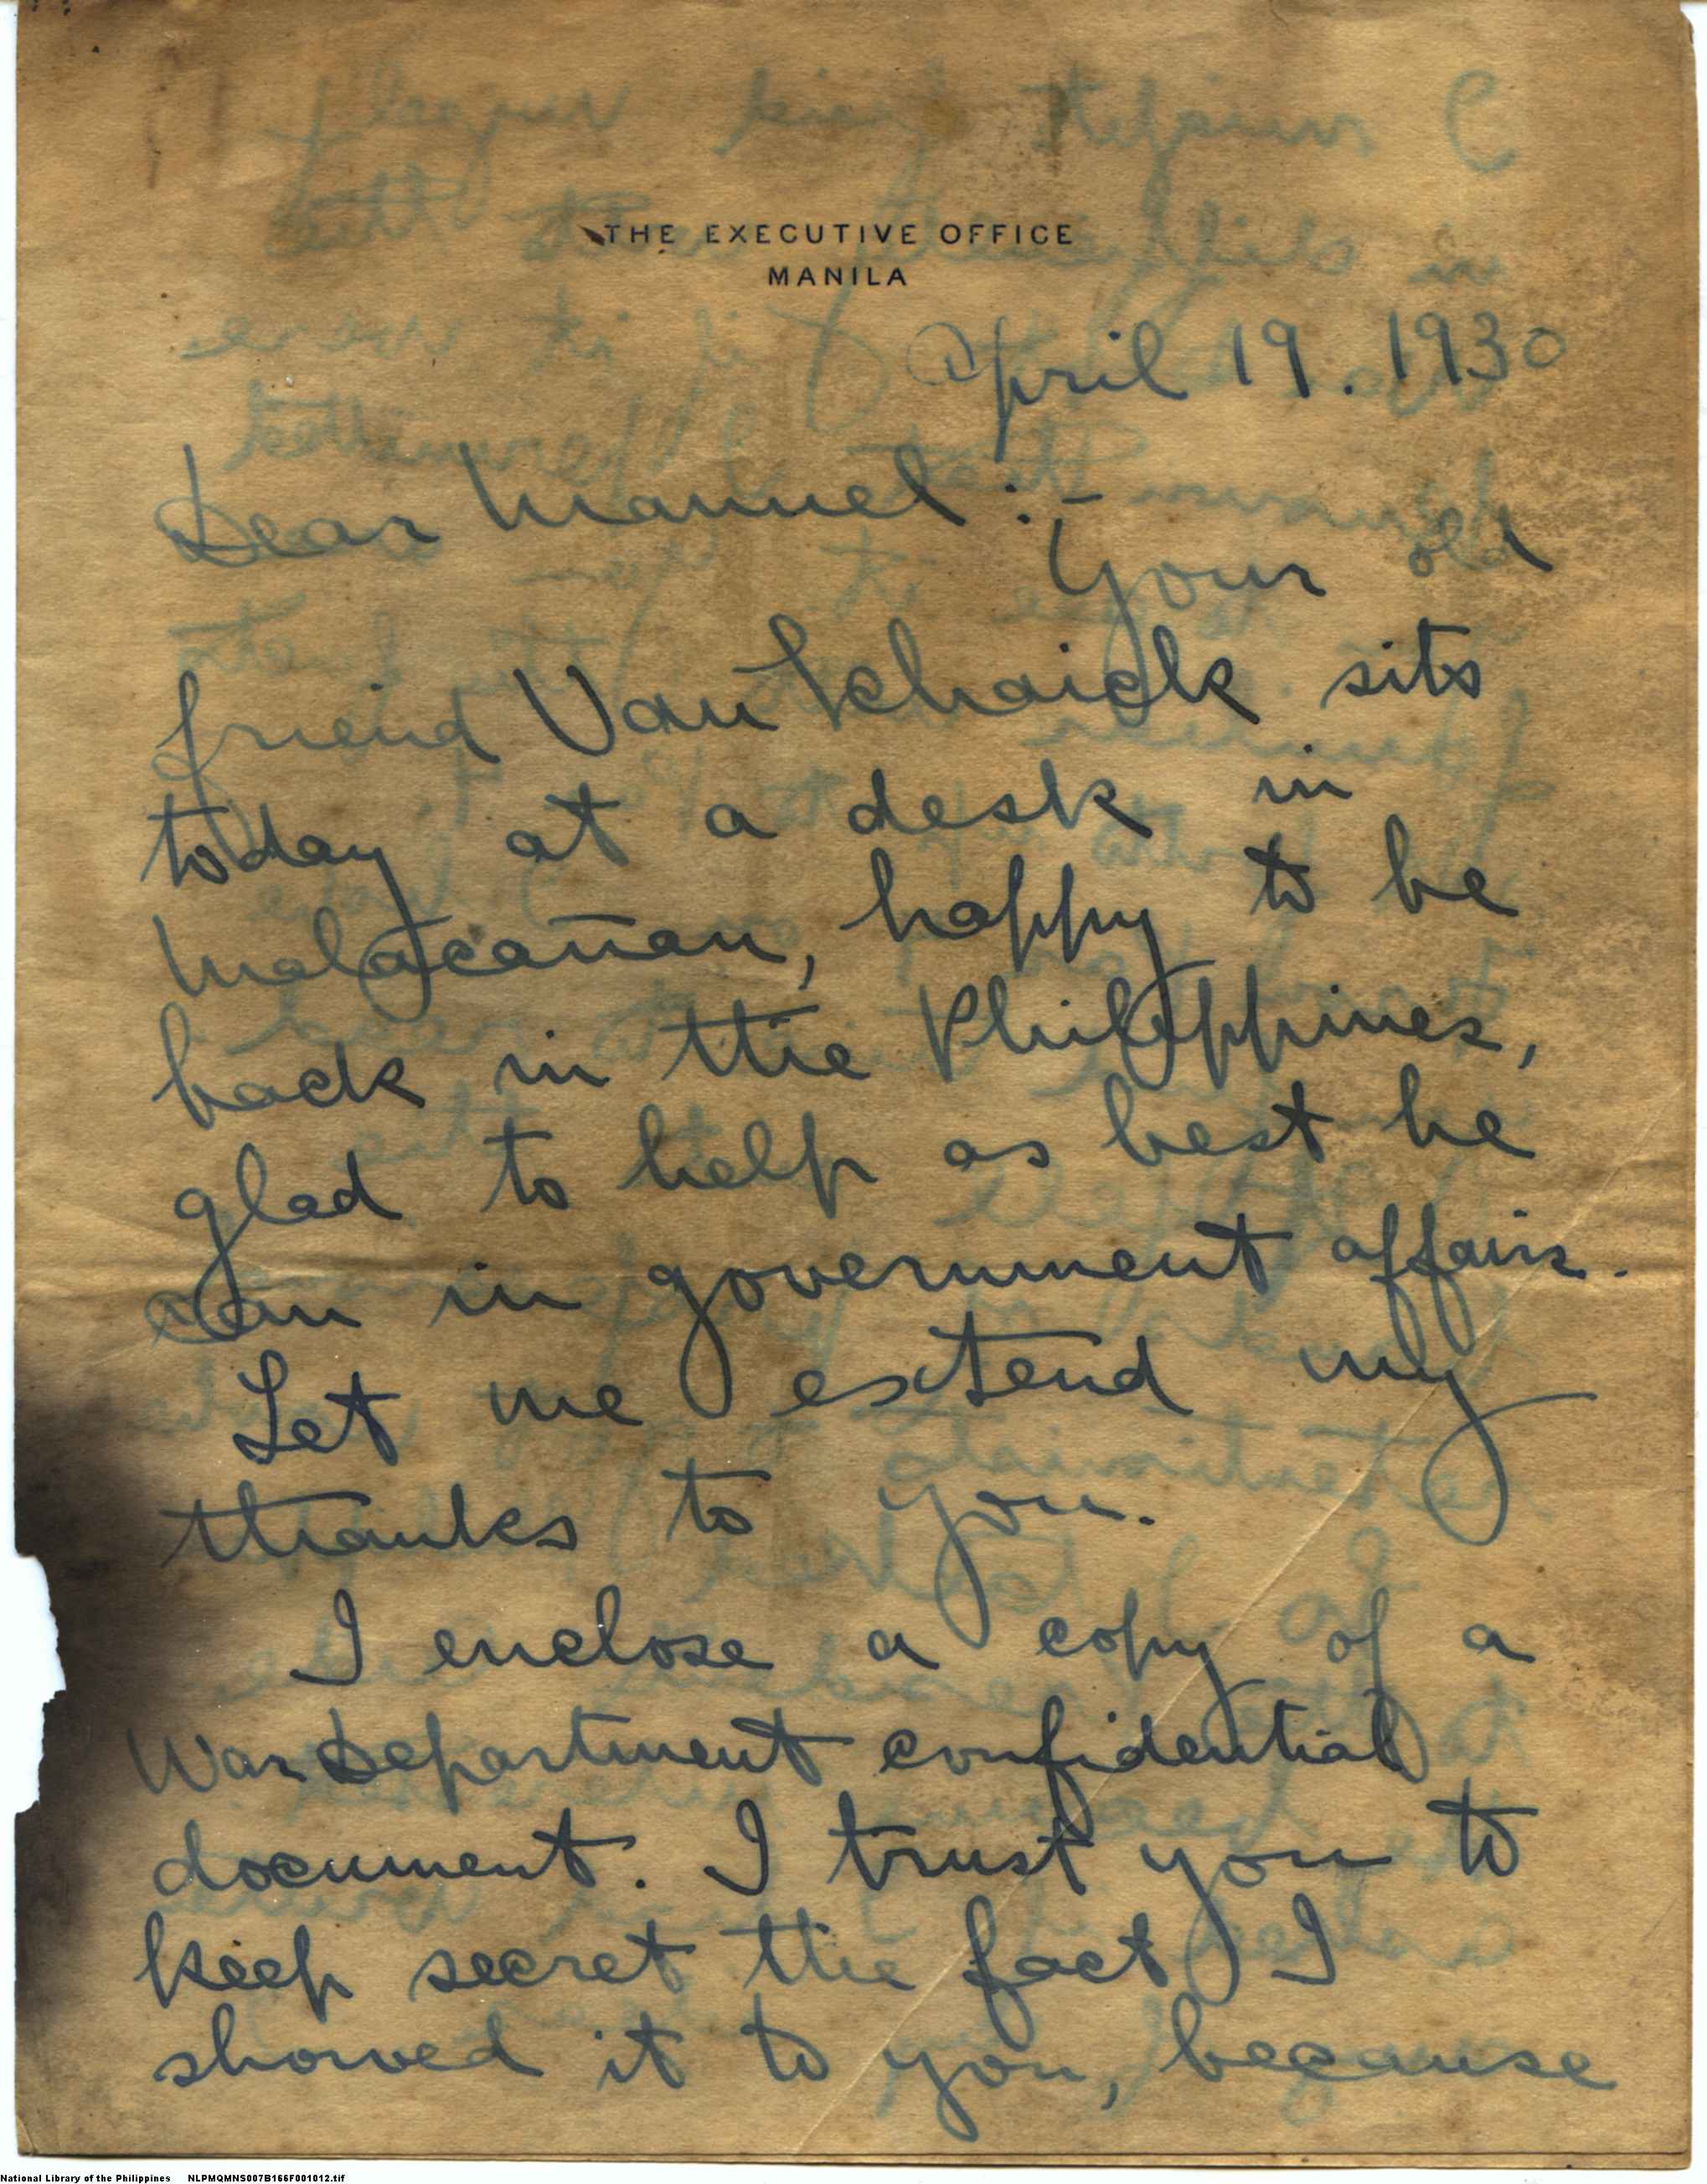 THE EXECUTIVE OFFICE
MANILA
April 19. 1930
Dear Manuel:-
Your old
friend Van Schaick sits
today at a desk in
Malacañan, happy to be
back in the Philippines,
glad to help as best he
can in government affairs.
Let me extend my
thanks to you.
I enclose a copy of a
War Department confidential
document. I trust you to
keep secret the fact I
showed it to you, because
National Library of the Philippines NLPMQMNS007B166F001012.tif